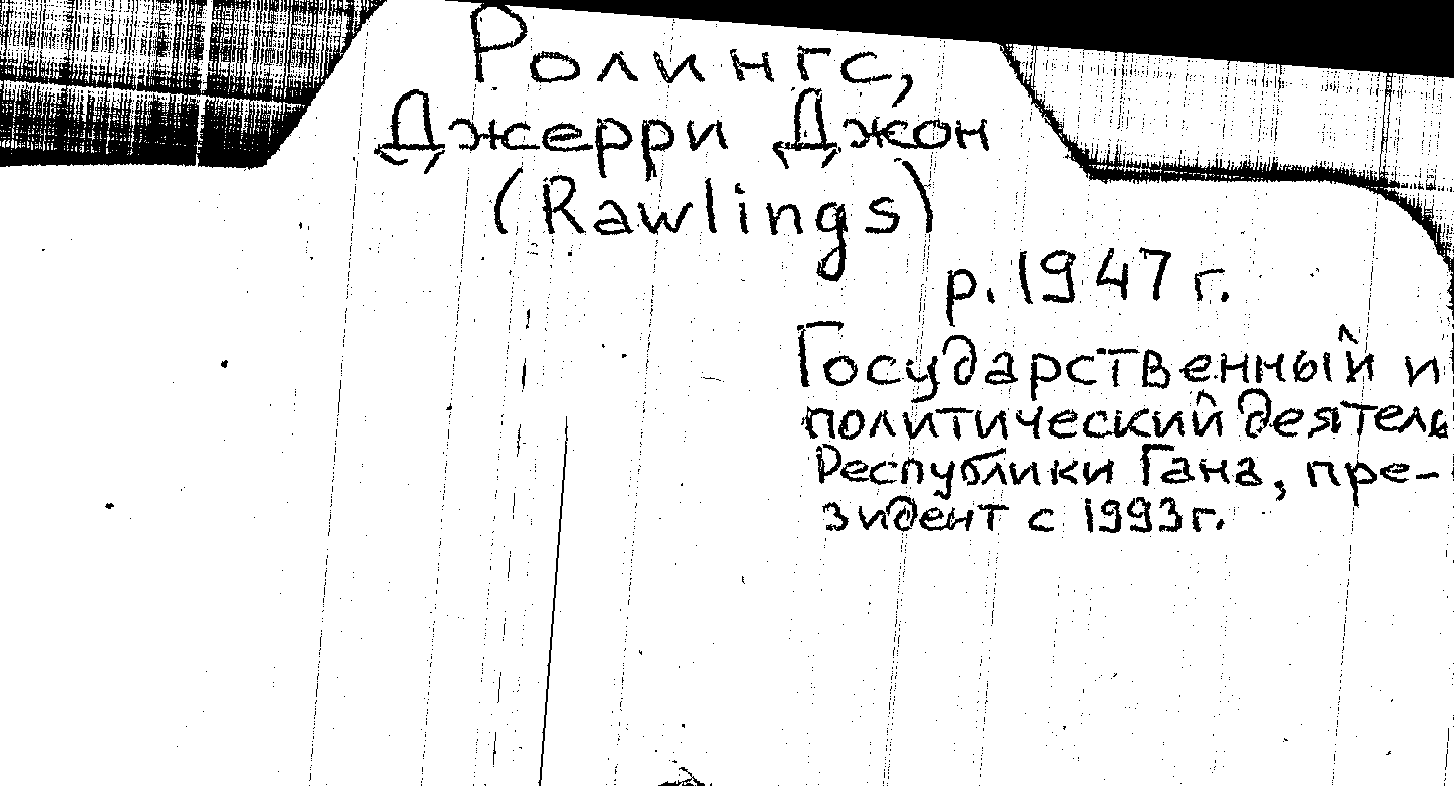 Ролингс,
Джерри Джон
(Rawlings)
р. 1947 г.
Государственный и
политический деятель
Республики Гана, пре-
зидент с 1993г.